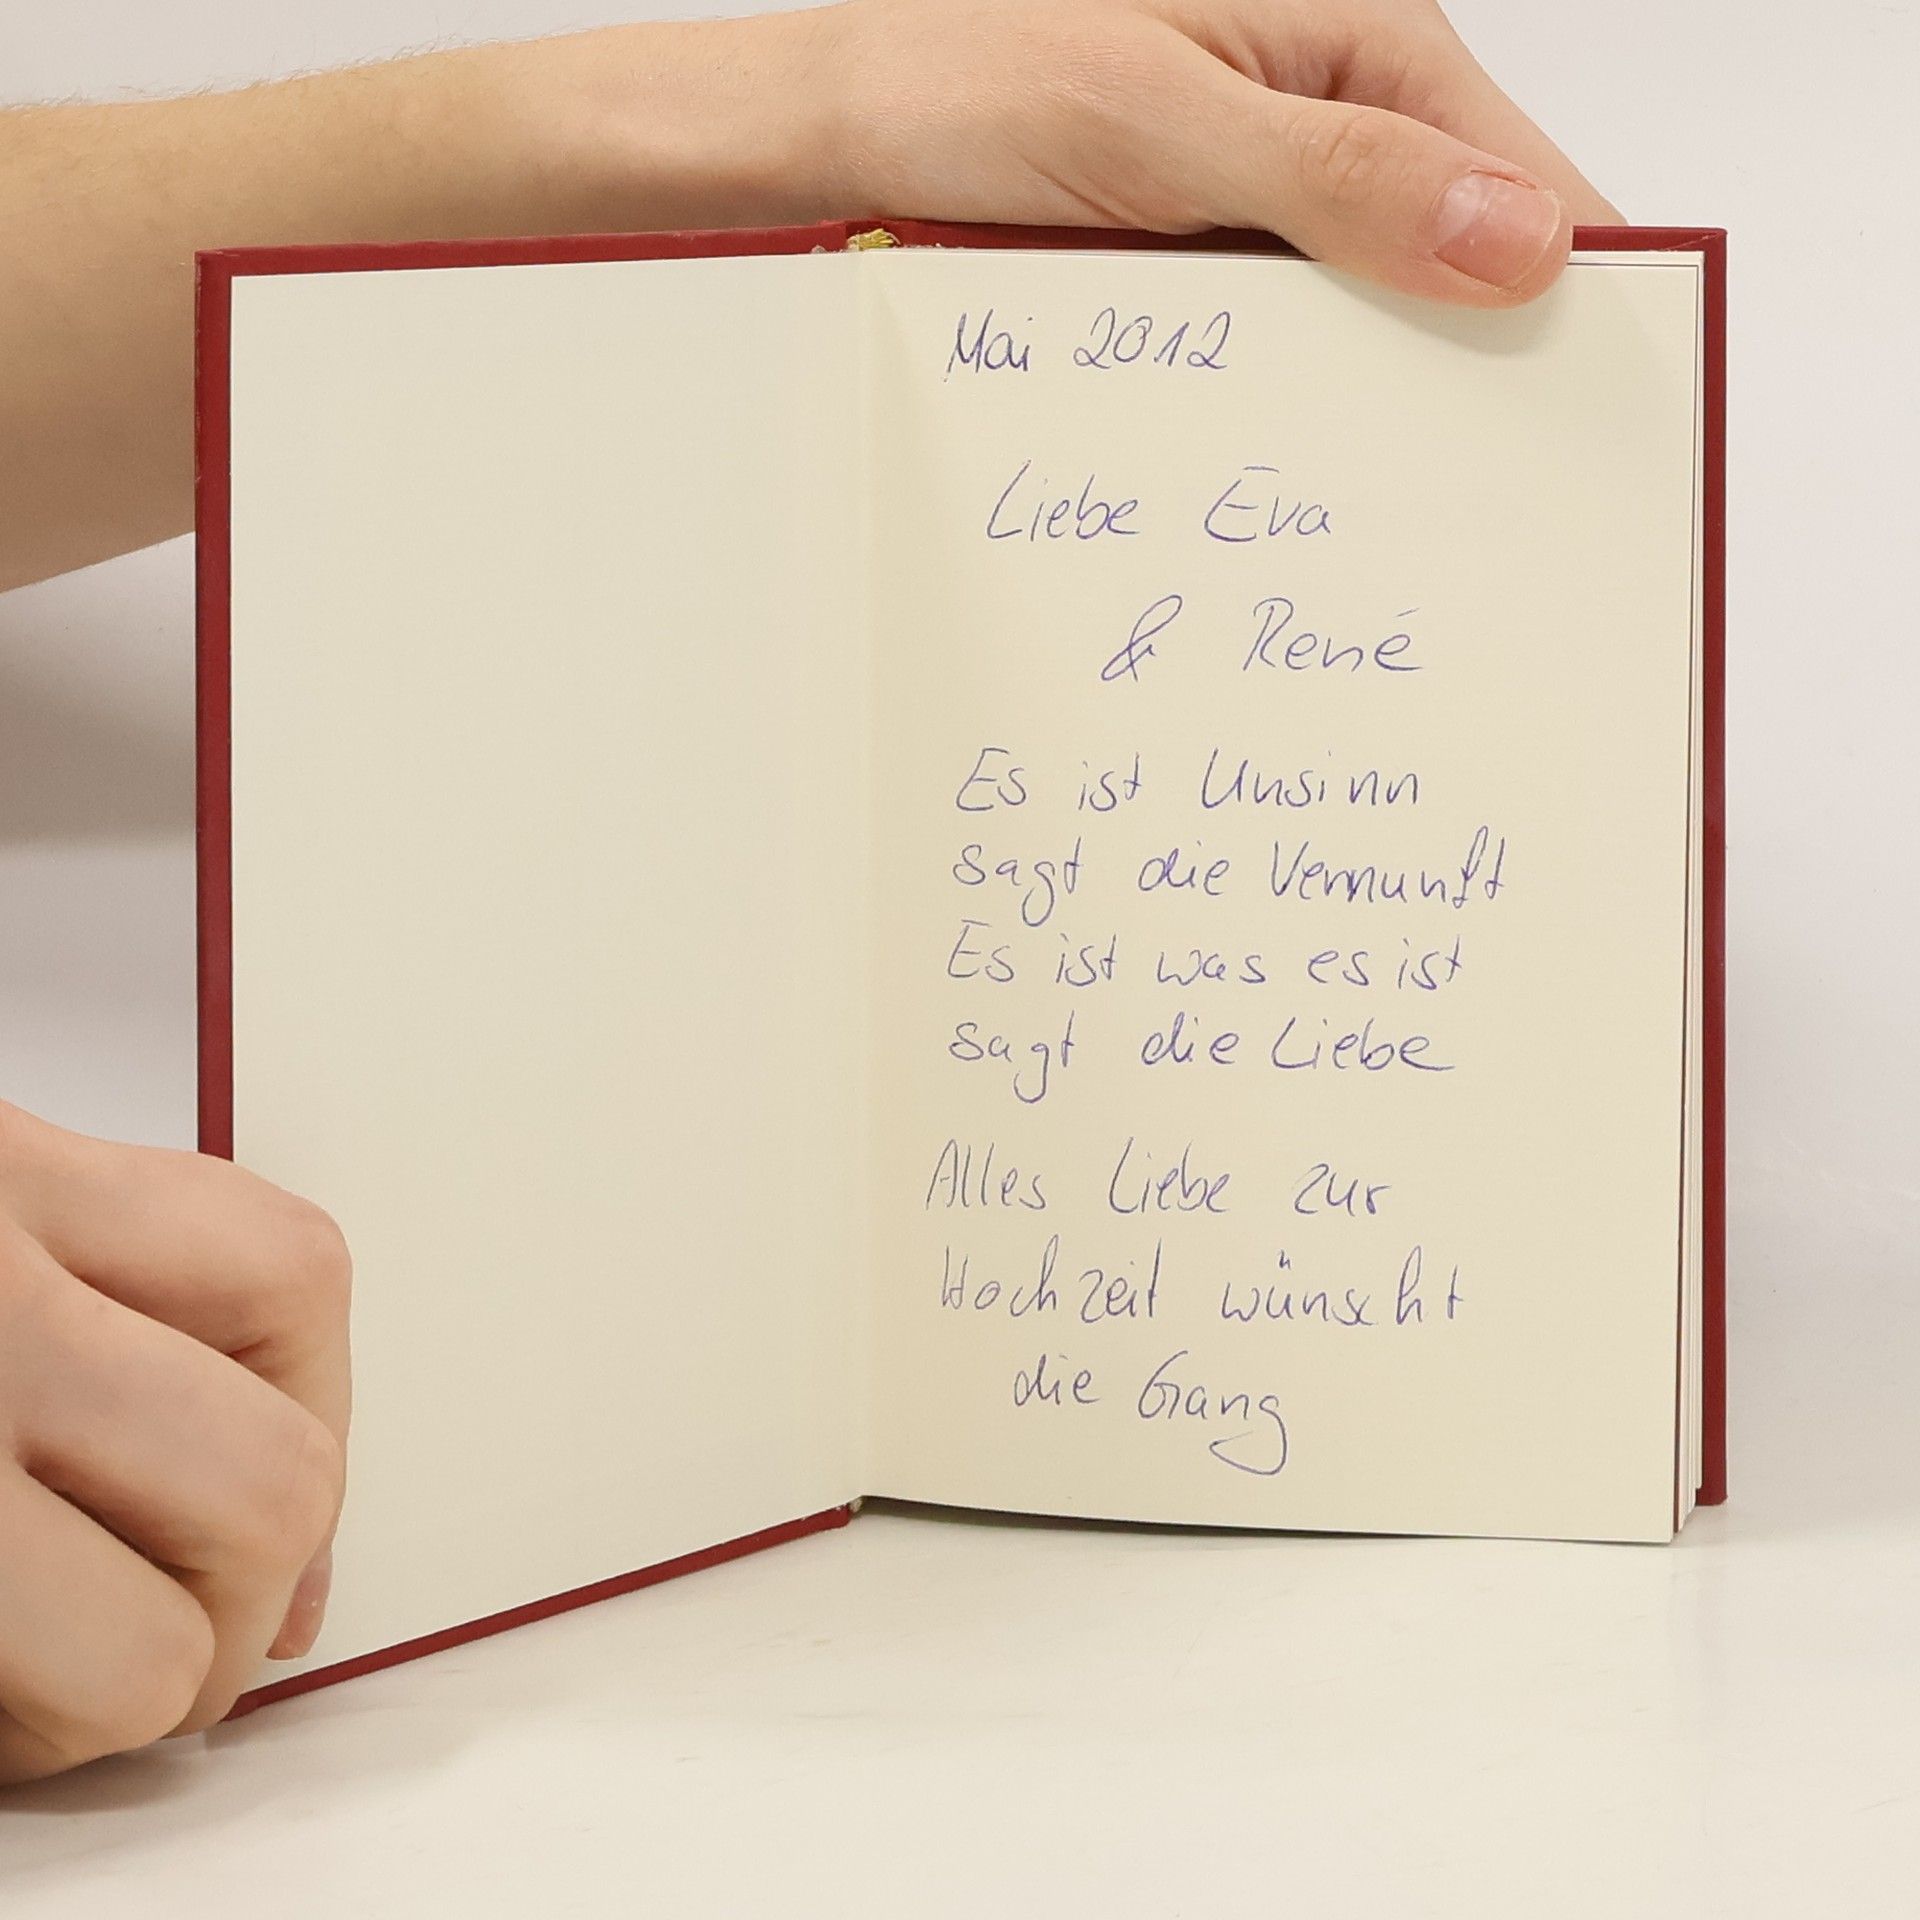 Mai 2012
Liebe Eva
& René
Es ist Unsinn
sagt die Vernunft
Es ist was es ist
sagt die Liebe
Alles Liebe zur
Hochzeit wünscht
die Gang